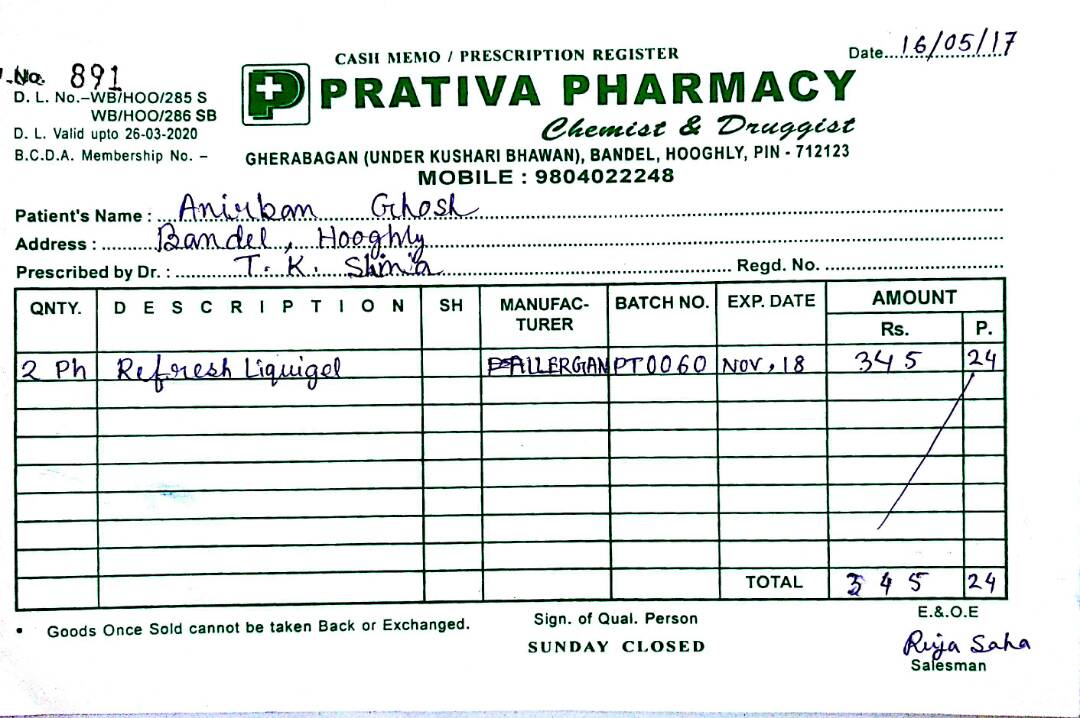 CASH MEMO / PRESCRIPTION REGISTER
Date... 16/05/17
No. 891
D. L. No.–WB/HOO/285 S
WB/HOO/286 SB
D. L. Valid upto 26-03-2020
B.C.D.A. Membership No. –
PRATIVA PHARMACY
Chemist & Druggist
GHERABAGAN (UNDER KUSHARI BHAWAN), BANDEL, HOOGHLY, PIN - 712123
MOBILE : 9804022248
Patient's Name : Anirban Ghosh
Address : Bandel, Hooghly
Prescribed by Dr. : T. K. Regd. No.
QNTY. DESCRIPTION SH MANUFAC-TURER BATCH NO. EXP. DATE AMOUNT
Rs. P.
2 Ph Refresh Liquigel ALLERGAN PT0060 NOV, 18 345 24
TOTAL 345 24
• Goods Once Sold cannot be taken Back or Exchanged.
Sign. of Qual. Person
E.&.O.E
SUNDAY CLOSED
Saha
Salesman